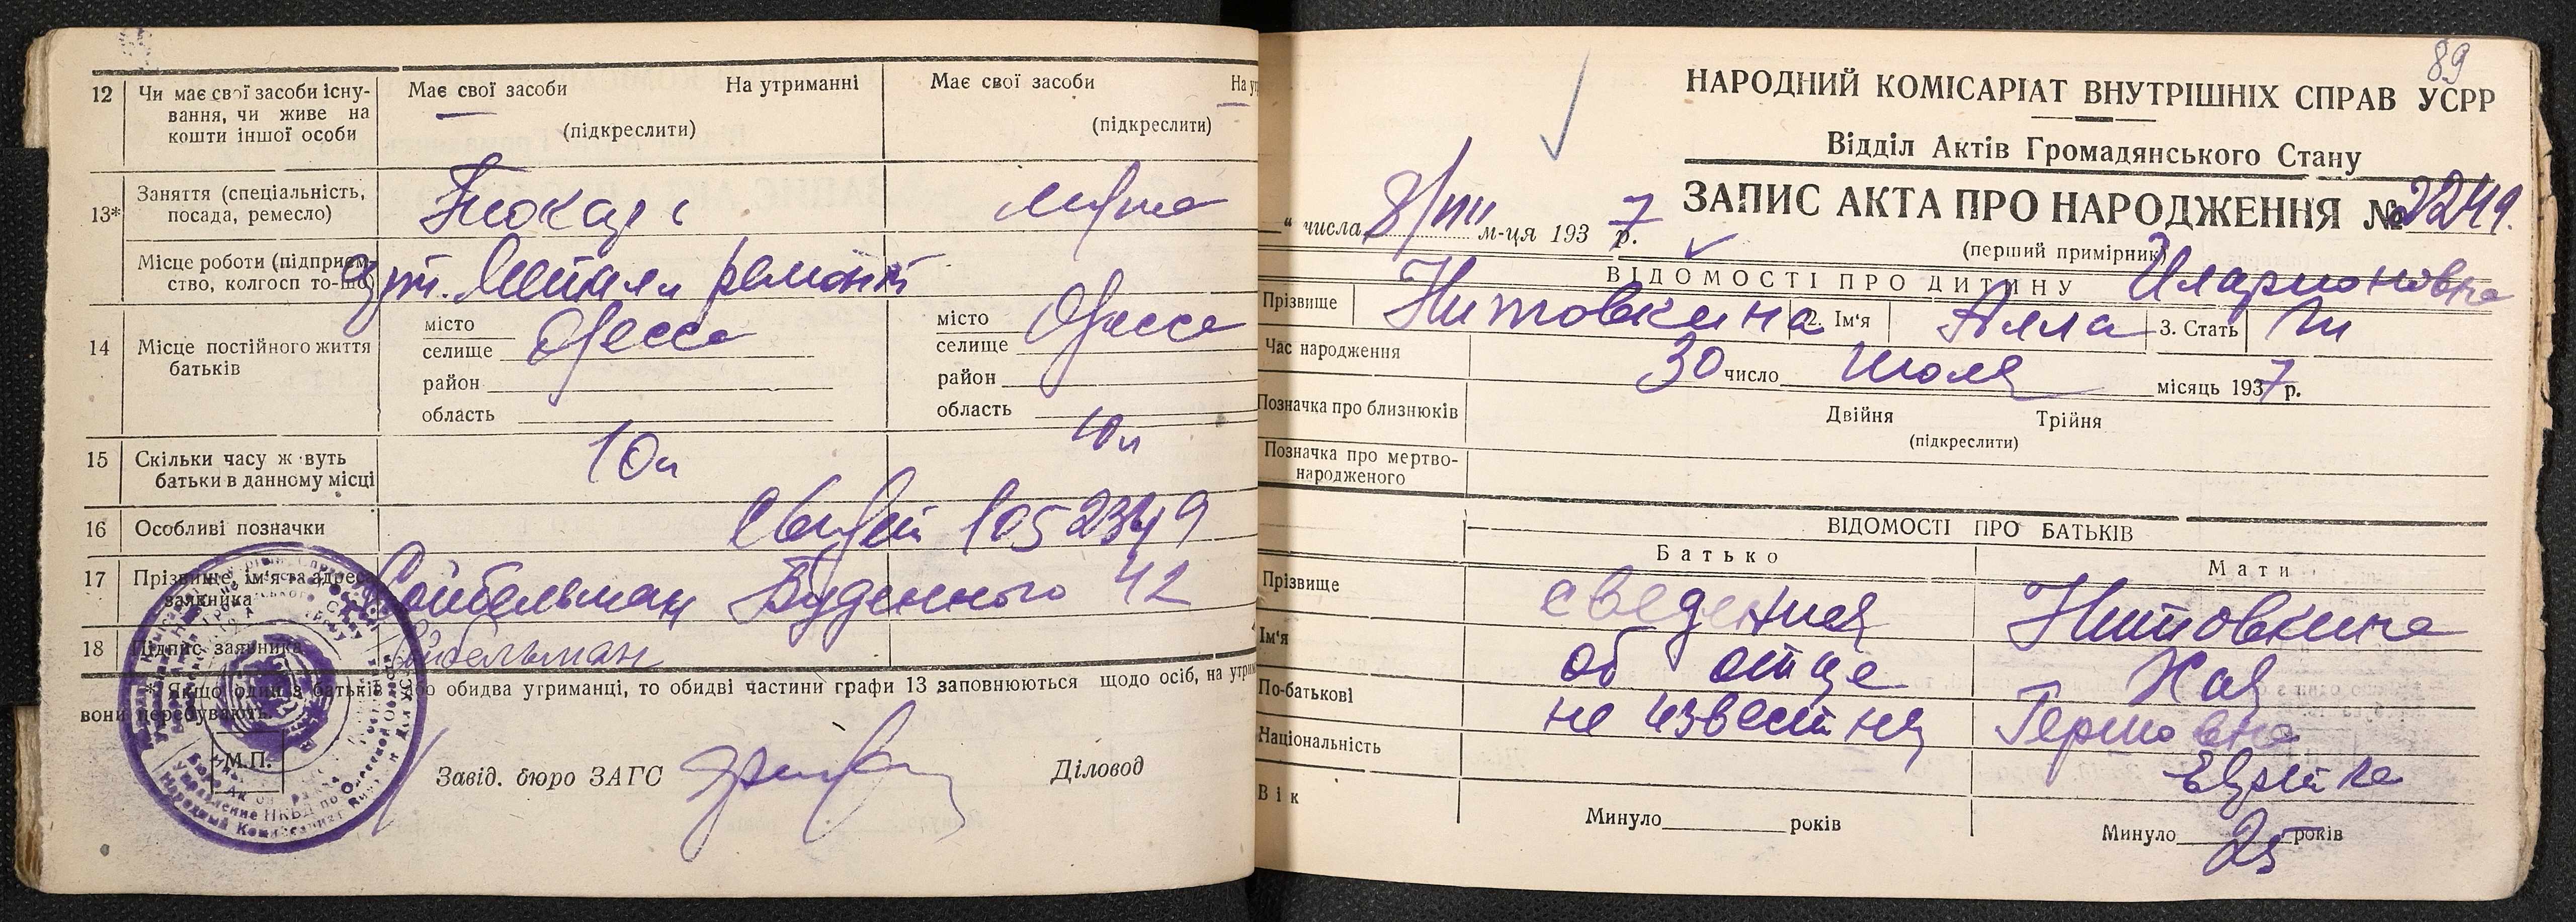 12 Чи має свої засоби існу-
вання, чи живе на
кошти іншої особи
Має свої засоби На утриманні
(підкреслити)
Має свої засоби На ут
(підкреслити)
13* Заняття (спеціальність,
посада, ремесло)
Токарь
Місце роботи (підприєм-
ство, колгосп то-що)
арт. Металл ремонт
14 Місце постійного життя
батьків
місто
селище Одесса
район
область
місто
селище Одесса
район
область
15 Скільки часу живуть
батьки в данному місці
10 л
10 л
16 Особливі позначки
1052349
17 Прізвище, ім'я та адреса
заявника
Сойбельман Буденного 42
18 Підпис заявника
Сойбельман
* Якщо один з батьків або обидва утриманці, то обидві частини графи 13 заповнюються щодо осіб, на утри
вони перебувають.
М.П.
Завід. бюро ЗАГС
Діловод
89
НАРОДНИЙ КОМІСАРІАТ ВНУТРІШНІХ СПРАВ УСРР
Відділ Актів Громадянського Стану
ЗАПИС АКТА ПРО НАРОДЖЕННЯ № 2249.
" числа 8/VIII м-ця 1937 р.
(перший примірник)
ВІДОМОСТІ ПРО ДИТИНУ Иларионовна
Прізвище Нитовкина 2. Ім'я Алла 3. Стать
Час народження 30 число Июля місяць 1937 р.
Позначка про близнюків Двійня Трійня
(підкреслити)
Позначка про мертво-
народженого
ВІДОМОСТІ ПРО БАТЬКІВ
Батько Мати
Прізвище сведения Нитовкина
Ім'я об отце Хая
По-батькові не известны Гершовна
Національність Еврейка
Вік Минуло років Минуло 25 років